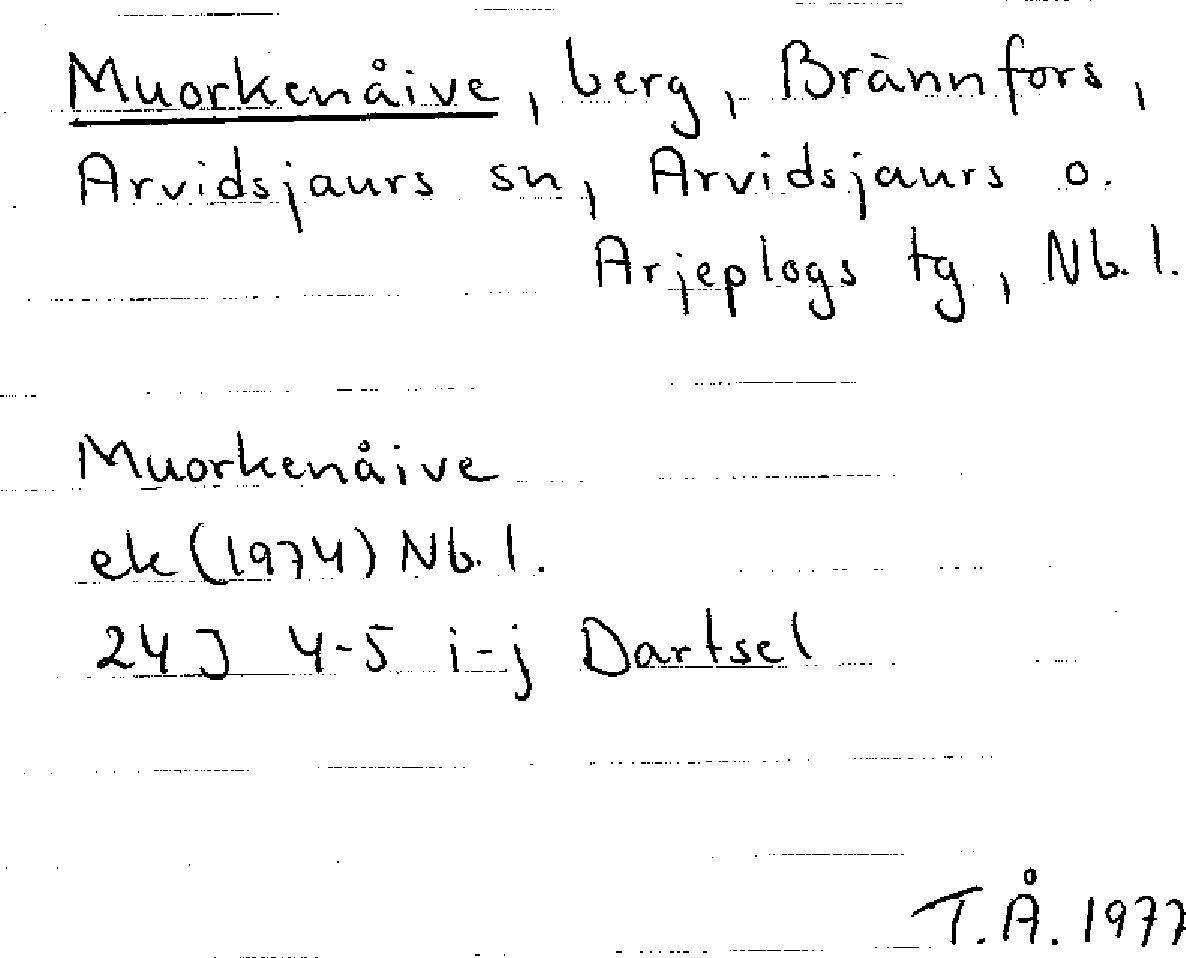 Muorkenåive, berg, Brännfors,
Arvidsjaurs sn, Arvidsjaurs o.
Arjeplogs tg, Nb. l.
Muorkenåive
ek (1974) Nb. l.
24J 4-5 i-j Dartsel
T.Å. 1977